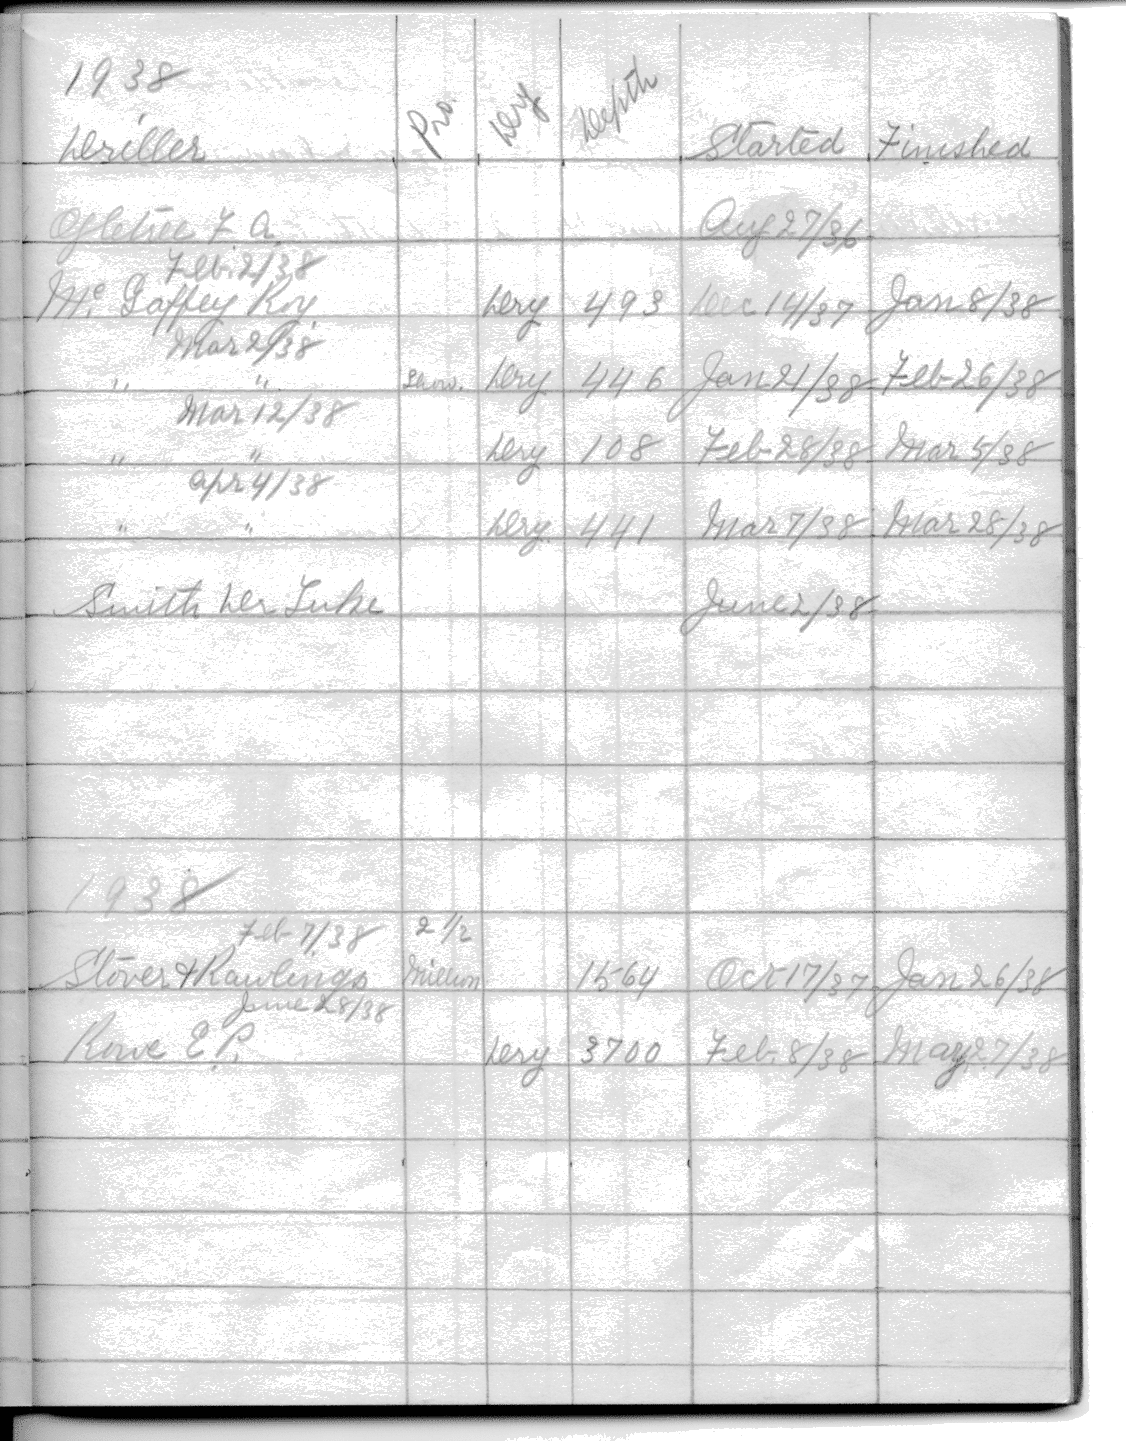 1938
Driller Pro. Dry Depth Started Finished
Ogletree F A. Aug 27/36
Feb. 2/38
Mc Gaffey Roy Dry 493 Dec 14/37 Jan 8/38
Mar 2/38
" " Dry 446 Jan 21/38 Feb 26/38
Mar 12/38
" " Dry 108 Feb 28/38 Mar 5/38
Apr 4/38
" " Dry. 441 Mar 7/38 Mar 28/38
Smith Dr Luke June 2/38
1938
Feb 7/38 2 1/2
Stover & Rawlings Million 1564 Oct 17/37 Jan 26/38
June 28/38
Rowe E P. Dry 3700 Feb. 8/38 May 27/38